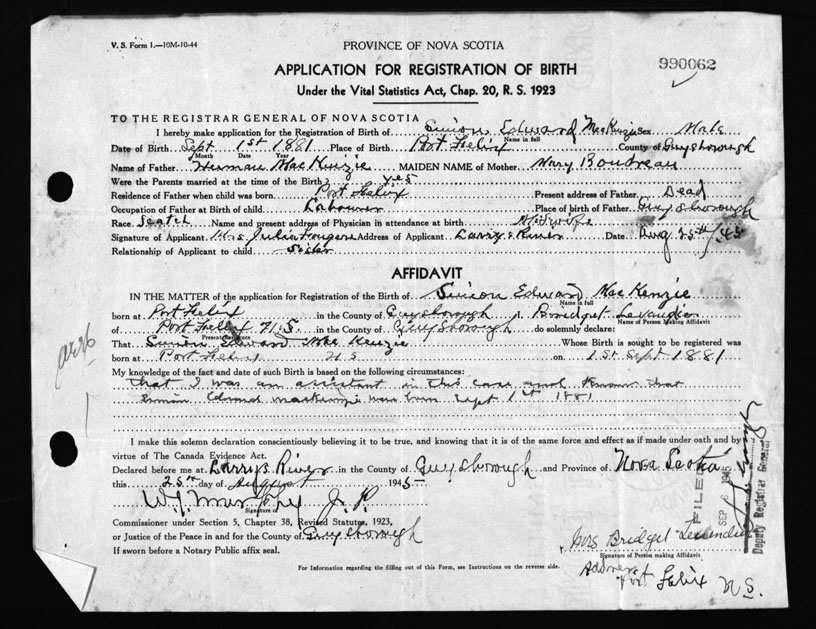 V. S. Form 1.—10M-10-44
PROVINCE OF NOVA SCOTIA
990062
APPLICATION FOR REGISTRATION OF BIRTH
Under the Vital Statistics Act, Chap. 20, R. S. 1923
TO THE REGISTRAR GENERAL OF NOVA SCOTIA
I hereby make application for the Registration of Birth of Simon Edward MacKenzie Sex Male
Name in full
Date of Birth Sept 1st 1881 Place of Birth Port Felix County of Guysborough
Month Date Year
Name of Father Herman MacKenzie MAIDEN NAME of Mother Mary Boudreau
Were the Parents married at the time of the Birth? yes
Residence of Father when child was born Port Felix Present address of Father Dead
Occupation of Father at Birth of child Labourer Place of birth of Father Guysborough
Race Scotch Name and present address of Physician in attendance at birth
Signature of Applicant Mrs Julia Fougere Address of Applicant Larrys River Date Aug 25th/45
Relationship of Applicant to child Sister
AFFIDAVIT
IN THE MATTER of the application for Registration of the Birth of Simon Edward MacKenzie
Name in full
born at Port Felix in the County of Guysborough I, Bridget Levandier
Name of Person Making Affidavit
of Port Felix N.S. in the County of Guysborough do solemnly declare:
Present Residence
That Simon Edward MacKenzie Whose Birth is sought to be registered was
born at Port Felix N S on 1st Sept 1881
My knowledge of the fact and date of such Birth is based on the following circumstances:
that I was an assistant in this case and Know that
Simon Edward MacKenzie was born Sept 1st 1881
I make this solemn declaration conscientiously believing it to be true, and knowing that it is of the same force and effect as if made under oath and by
virtue of The Canada Evidence Act.
Declared before me at Larrys River in the County of Guysborough and Province of Nova Scotia
this 25th day of August 1945
J. P.
Signature of
Commissioner under Section 5, Chapter 38, Revised Statutes, 1923,
or Justice of the Peace in and for the County of Guysborough
If sworn before a Notary Public affix seal.
Mrs Bridget Levandier
Signature of Person making Affidavit
Address Port Felix N.S.
For Information regarding the filling out of this Form, see Instructions on the reverse side.
FILED
SEP 1945
Deputy Registrar General